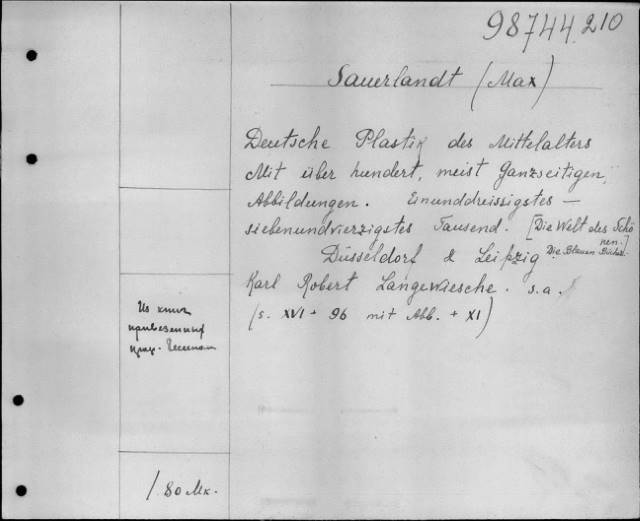 98744.210
Sauerlandt (Max)
Deutsche Plastik des Mittelalters
Mit über hundert, meist Ganzseitigen,
Abbildungen. Einunddreissigstes —
siebenundvierzigstes Tausend. [Die Welt des Schö
nen.]
Düsseldorf & Leipzig. Die Blauen Bücher.
Karl Robert Langewiesche. s.a.
(s. XVI + 96 mit Abb. + XI)
Из книг
привезенных
1.80 Мк.